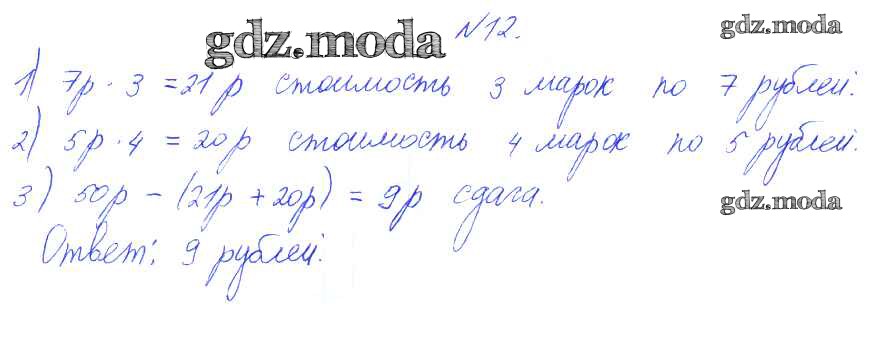 gdz.moda №12. gdz.moda
1) 7р · 3 = 21 р стоимость 3 марок по 7 рублей.
2) 5р · 4 = 20р стоимость 4 марок по 5 рублей.
3) 50р - (21р + 20р) = 9р сдача.
gdz.moda
Ответ: 9 рублей.